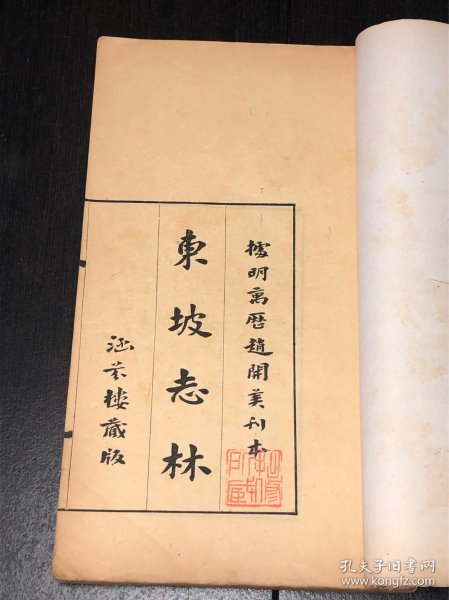 據明萬歷趙開美刊本
東坡志林
涵芬樓藏版
孔夫子旧书网
www.kongfz.com